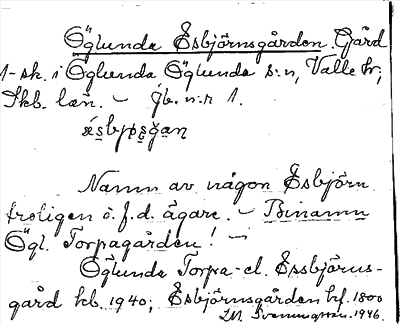 Öglunda Esbjörnsgården. Gård
1-sk. i Öglunda Öglunda s:n, Valle hr;
Skb. län. – Jb. n:r 1.
Namn av någon Esbjörn
troligen ö. f.d. ägare. – Binamn
Ögl. Torpagården! –
Öglunda Torpa- el. Essbjörns-
gård kb. 1940; Esbjörnsgården hf. 1800
1946.